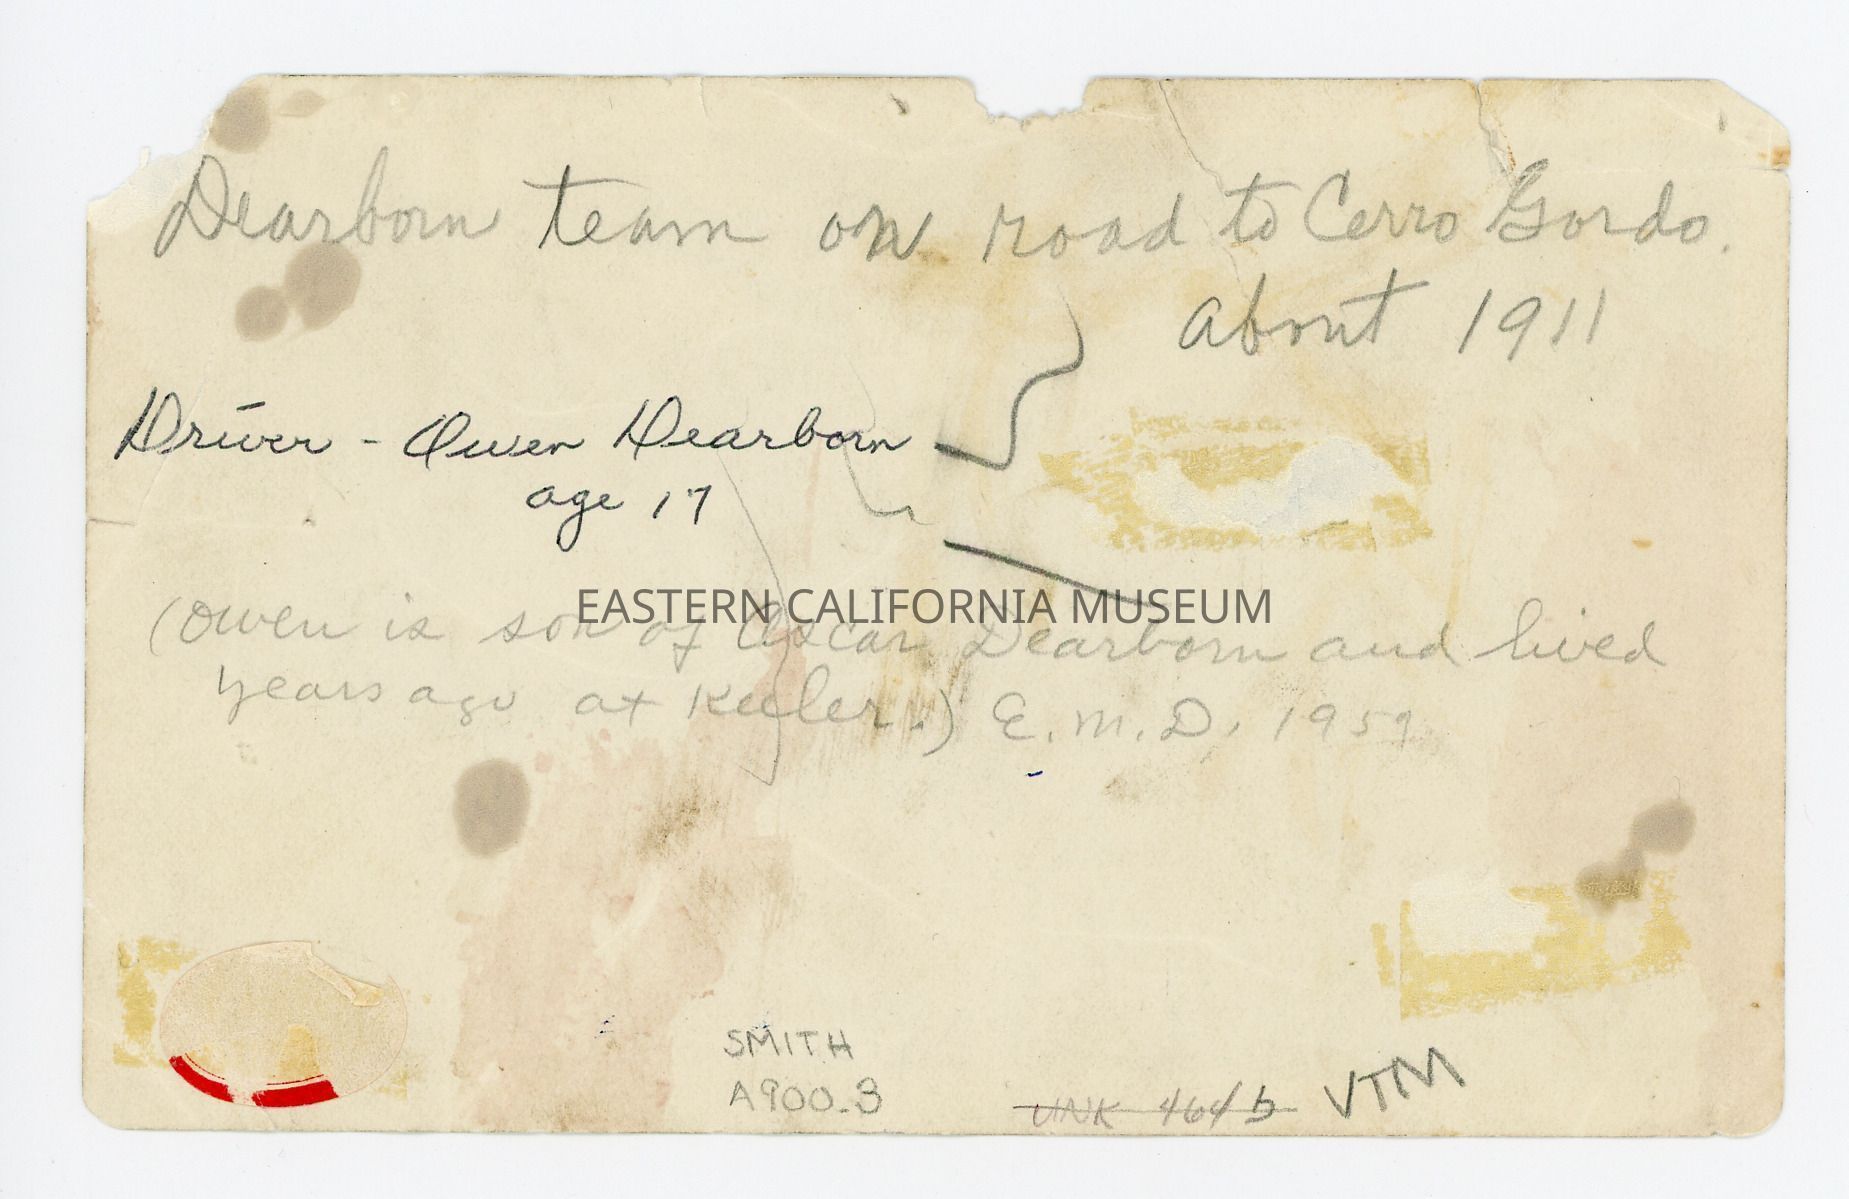 Dearborn team on road to Cerro Gordo.
about 1911
Driver - Owen Dearborn
age 17
EASTERN CALIFORNIA MUSEUM
(Owen is son of Oscar Dearborn and lived
years ago at Keeler.) E. M. D. 1959
SMITH
A900.3
UNK 464b
VTM